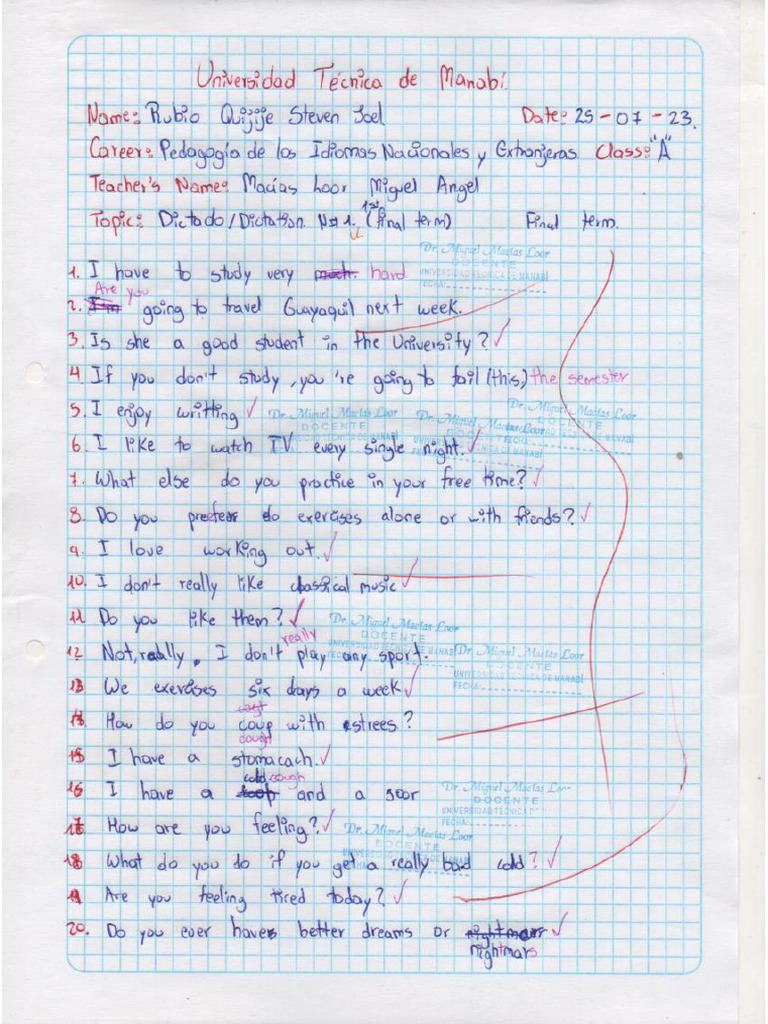 Universidad Técnica de Manabí.
Name: Rubio Quijije Steven Joel Date: 25-07-23.
Career: Pedagogía de los Idiomas Nacionales y Extranjeros Class: "A"
Teacher's Name: Macías Loor Miguel Angel
1st
Topic: Dictado/Dictation Nº 1. (final term) Final term.
Dr. Miguel Macías Loor
DOCENTE
UNIVERSIDAD TECNICA DE MANABÍ
FECHA:
1. I have to study very much. hard
Are you
2. I'm going to travel Guayaquil next week.
3. Is she a good student in the University?
4. If you don't study, you're going to fail (this) the semester
5. I enjoy writting
Dr. Miguel Macías Loor
DOCENTE
Dr. Miguel Macías Loor
Dr. Miguel Macías Loor
DOCENTE
6. I like to watch TV every single night.
7. What else do you practice in your free time?
8. Do you prefeer do exercises alone or with friends?
9. I love working out.
10. I don't really like classical music
11. Do you like them?
Dr. Miguel Macías Loor
DOCENTE
really
12. Not, really, I don't play any sport.
Dr. Miguel Macías Loor
DOCENTE
FECHA:
13. We exercises six days a week
14. How do you coup with estrees?
cough
15. I have a stomacach.
cold cough
16. I have a and a soor
Dr. Miguel Macías Loor
DOCENTE
UNIVERSIDAD TECNICA
FECHA:
17. How are you feeling?
Dr. Miguel Macías Loor
DOCENTE
18. What do you do if you get a really bad cold?
19. Are you feeling tired today?
20. Do you ever haves better dreams or nightmarr
nightmars